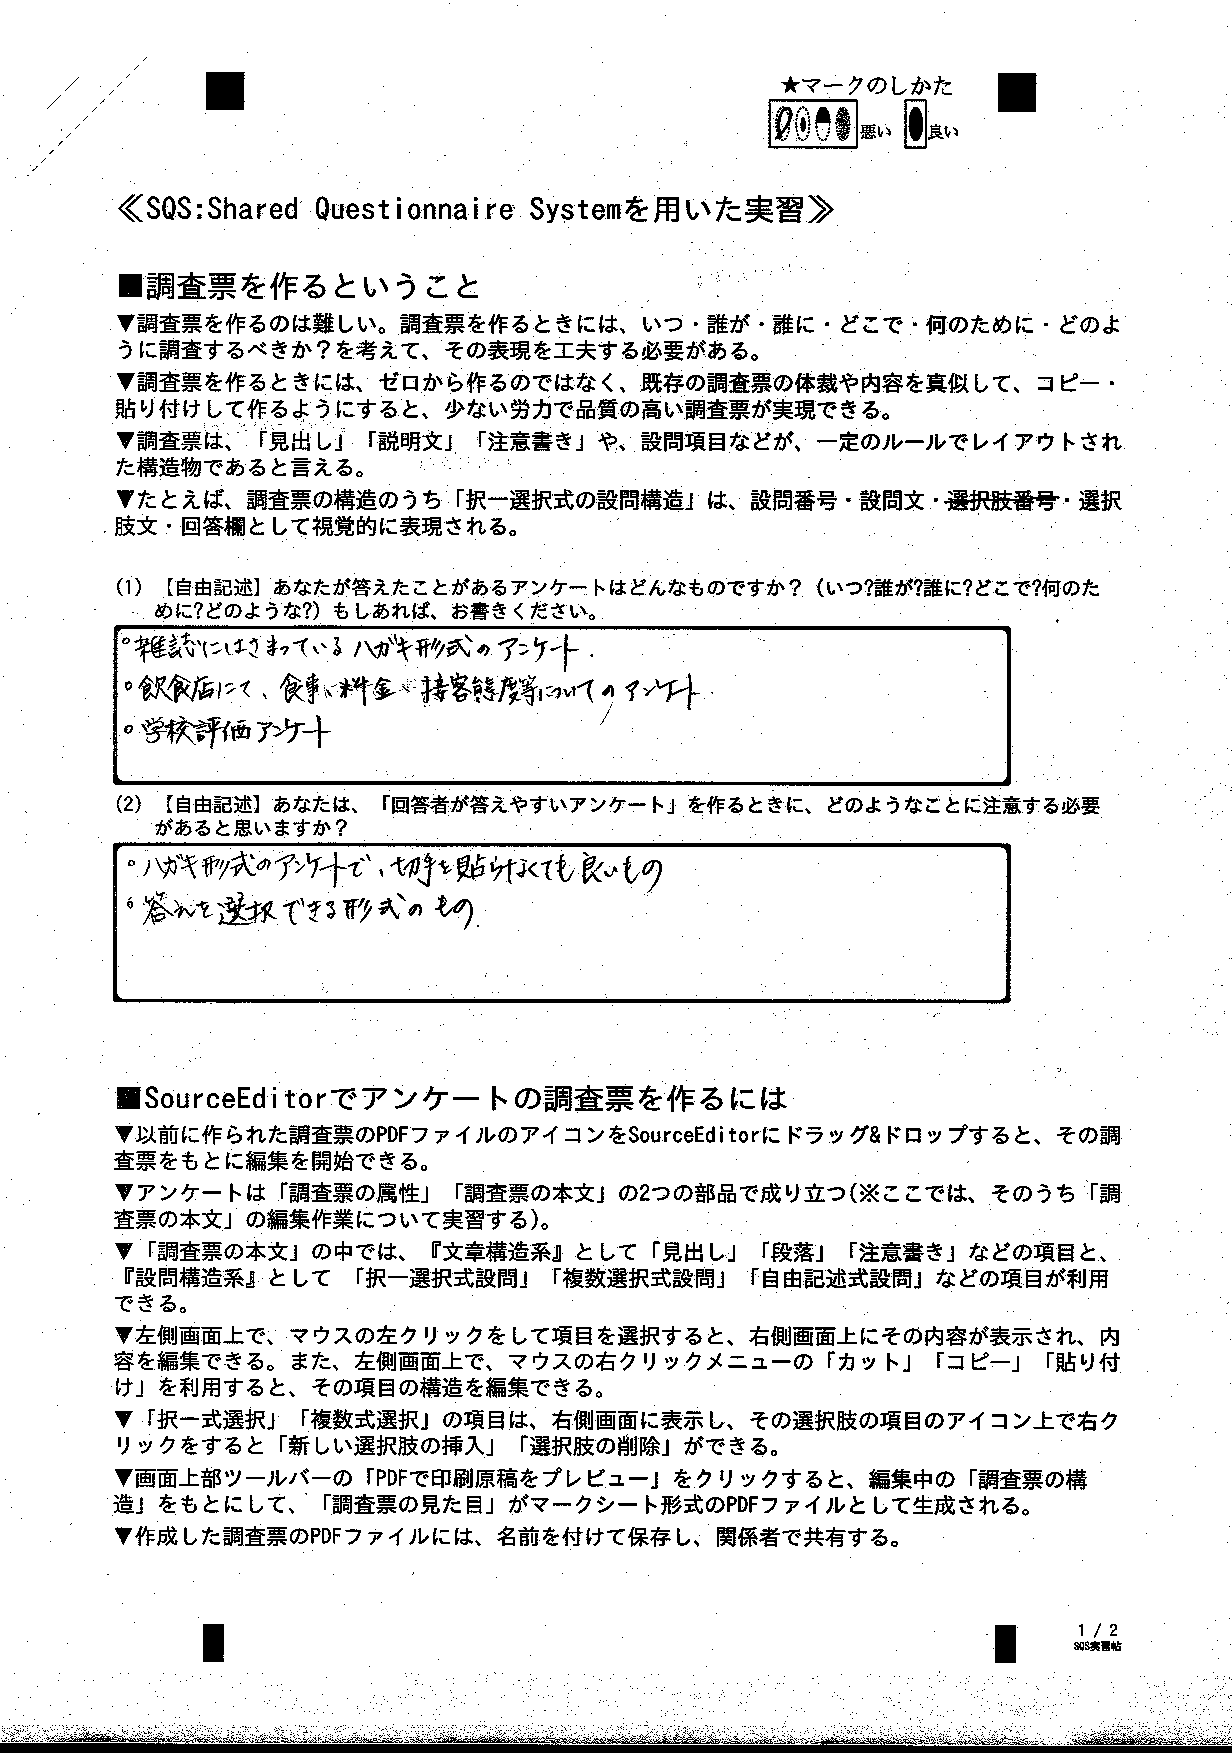 ★マークのしかた
悪い 良い
≪SQS:Shared Questionnaire Systemを用いた実習≫
■調査票を作るということ
▼調査票を作るのは難しい。調査票を作るときには、いつ・誰が・誰に・どこで・何のために・どのよ
うに調査するべきか？を考えて、その表現を工夫する必要がある。
▼調査票を作るときには、ゼロから作るのではなく、既存の調査票の体裁や内容を真似して、コピー・
貼り付けして作るようにすると、少ない労力で品質の高い調査票が実現できる。
▼調査票は、「見出し」「説明文」「注意書き」や、設問項目などが、一定のルールでレイアウトされ
た構造物であると言える。
▼たとえば、調査票の構造のうち「択一選択式の設問構造」は、設問番号・設問文・選択肢番号・選択
肢文・回答欄として視覚的に表現される。
(1) 【自由記述】あなたが答えたことがあるアンケートはどんなものですか？（いつ?誰が?誰に?どこで?何のた
めに?どのような?）もしあれば、お書きください。
○雑誌にはさまっているハガキ形式のアンケート.
○飲食店にて、食事、料金、接客態度等についてのアンケート
○学校評価アンケート
(2) 【自由記述】あなたは、「回答者が答えやすいアンケート」を作るときに、どのようなことに注意する必要
があると思いますか？
○ハガキ形式のアンケートで、切手を貼らなくても良いもの
○答えを選択できる形式のもの.
■SourceEditorでアンケートの調査票を作るには
▼以前に作られた調査票のPDFファイルのアイコンをSourceEditorにドラッグ&ドロップすると、その調
査票をもとに編集を開始できる。
▼アンケートは「調査票の属性」「調査票の本文」の2つの部品で成り立つ(※ここでは、そのうち「調
査票の本文」の編集作業について実習する)。
▼「調査票の本文」の中では、『文章構造系』として「見出し」「段落」「注意書き」などの項目と、
『設問構造系』として 「択一選択式設問」「複数選択式設問」「自由記述式設問」などの項目が利用
できる。
▼左側画面上で、マウスの左クリックをして項目を選択すると、右側画面上にその内容が表示され、内
容を編集できる。また、左側画面上で、マウスの右クリックメニューの「カット」「コピー」「貼り付
け」を利用すると、その項目の構造を編集できる。
▼「択一式選択」「複数式選択」の項目は、右側画面に表示し、その選択肢の項目のアイコン上で右ク
リックをすると「新しい選択肢の挿入」「選択肢の削除」ができる。
▼画面上部ツールバーの「PDFで印刷原稿をプレビュー」をクリックすると、編集中の「調査票の構
造」をもとにして、「調査票の見た目」がマークシート形式のPDFファイルとして生成される。
▼作成した調査票のPDFファイルには、名前を付けて保存し、関係者で共有する。
1 / 2
SQS実習帖